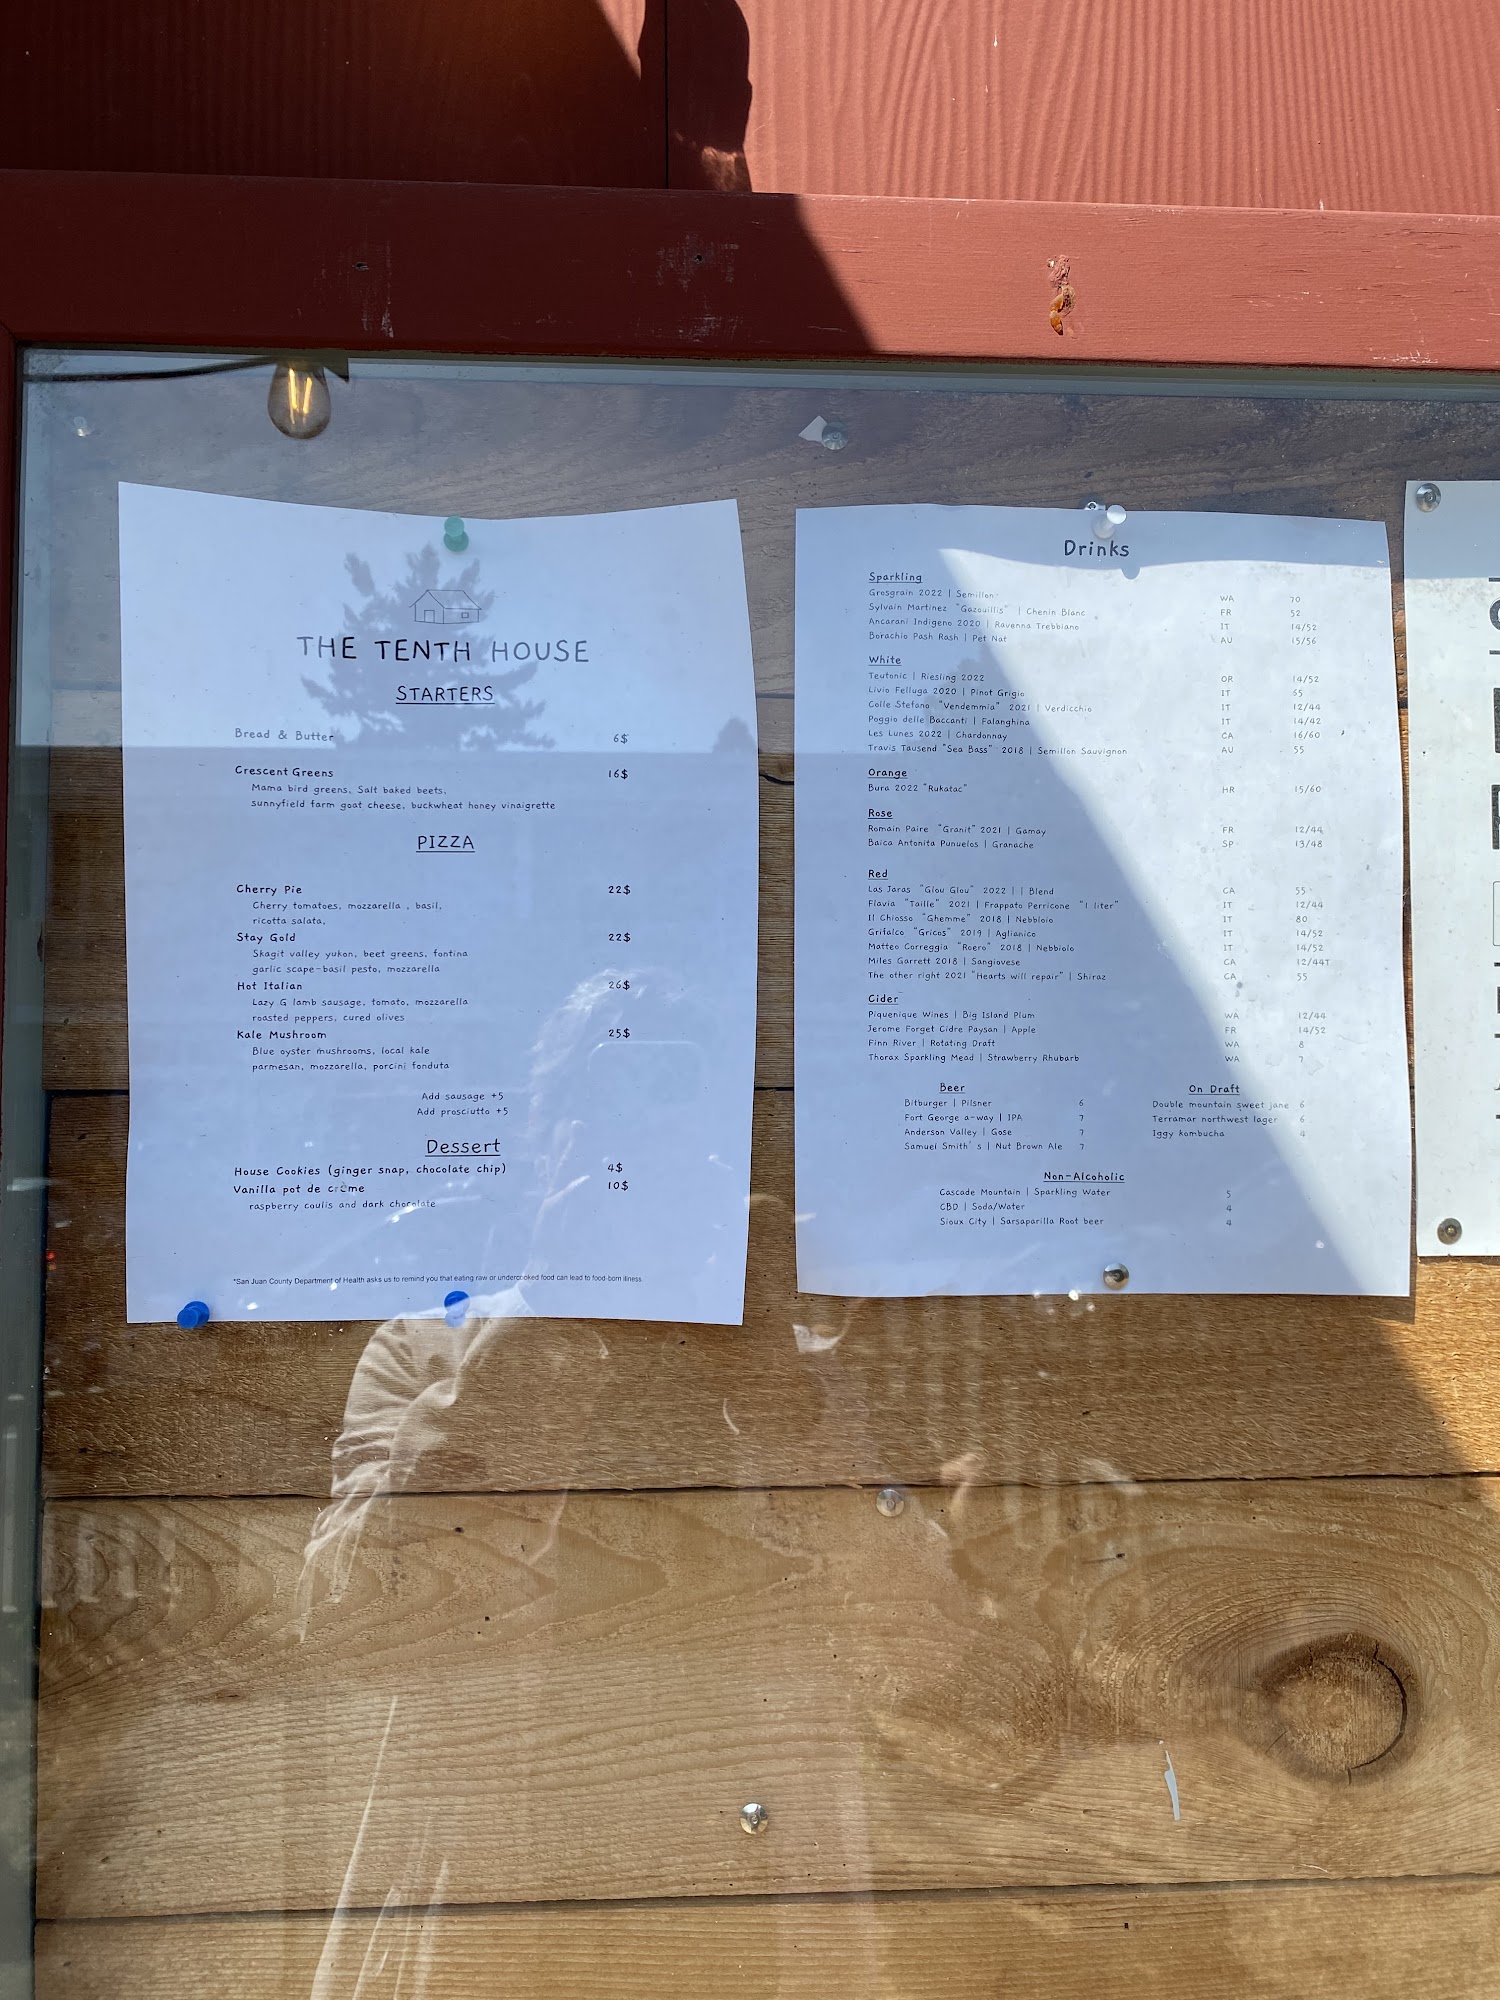 THE TENTH HOUSE
STARTERS
Bread & Butter 6$
Crescent Greens 16$
Mama bird greens, Salt baked beets,
sunnyfield farm goat cheese, buckwheat honey vinaigrette
PIZZA
Cherry Pie 22$
Cherry tomatoes, mozzarella , basil,
ricotta salata,
Stay Gold 22$
Skagit valley yukon, beet greens, fontina
garlic scape-basil pesto, mozzarella
Hot Italian 26$
Lazy G lamb sausage, tomato, mozzarella
roasted peppers, cured olives
Kale Mushroom 25$
Blue oyster mushrooms, local kale
parmesan, mozzarella, porcini fonduta
Add sausage +5
Add prosciutto +5
Dessert
House Cookies (ginger snap, chocolate chip) 4$
Vanilla pot de crème 10$
raspberry coulis and dark chocolate
*San Juan County Department of Health asks us to remind you that eating raw or undercooked food can lead to food-born illness
Drinks
Sparkling
Grosgrain 2022 | Semillon WA 70
Sylvain Martinez "Gazouillis" | Chenin Blanc FR 52
Ancarani Indigeno 2020 | Ravenna Trebbiano IT 14/52
Borachio Pash Rash | Pet Nat AU 15/56
White
Teutonic | Riesling 2022 OR 14/52
Livio Felluga 2020 | Pinot Grigio IT 65
Colle Stefano "Vendemmia" 2021 | Verdicchio IT 12/44
Poggio delle Baccanti | Falanghina IT 14/42
Les Lunes 2022 | Chardonnay CA 16/60
Travis Tausend "Sea Bass" 2018 | Semillon Sauvignon AU 55
Orange
Bura 2022 "Rukatac" HR 15/60
Rose
Romain Paire "Granit" 2021 | Gamay FR 12/44
Baica Antonita Punuelos | Granache SP 13/48
Red
Las Jaras "Glou Glou" 2022 | | Blend CA 55
Flavia "Taille" 2021 | Frappato Perricone "1 liter" IT 12/44
Il Chiosso "Ghemme" 2018 | Nebbloio IT 80
Grifalco "Gricos" 2019 | Aglianico IT 14/52
Matteo Correggia "Roero" 2018 | Nebbiolo IT 14/52
Miles Garrett 2018 | Sangiovese CA 12/44T
The other right 2021 "Hearts will repair" | Shiraz CA 55
Cider
Piquenique Wines | Big Island Plum WA 12/44
Jerome Forget Cidre Paysan | Apple FR 14/52
Finn River | Rotating Draft WA 8
Thorax Sparkling Mead | Strawberry Rhubarb WA 7
Beer
Bitburger | Pilsner 6
Fort George a-way | IPA 7
Anderson Valley | Gose 7
Samuel Smith's | Nut Brown Ale 7
On Draft
Double mountain sweet jane 6
Terramar northwest lager 6
Iggy kombucha 4
Non-Alcoholic
Cascade Mountain | Sparkling Water 5
CBD | Soda/Water 4
Sioux City | Sarsaparilla Root beer 4